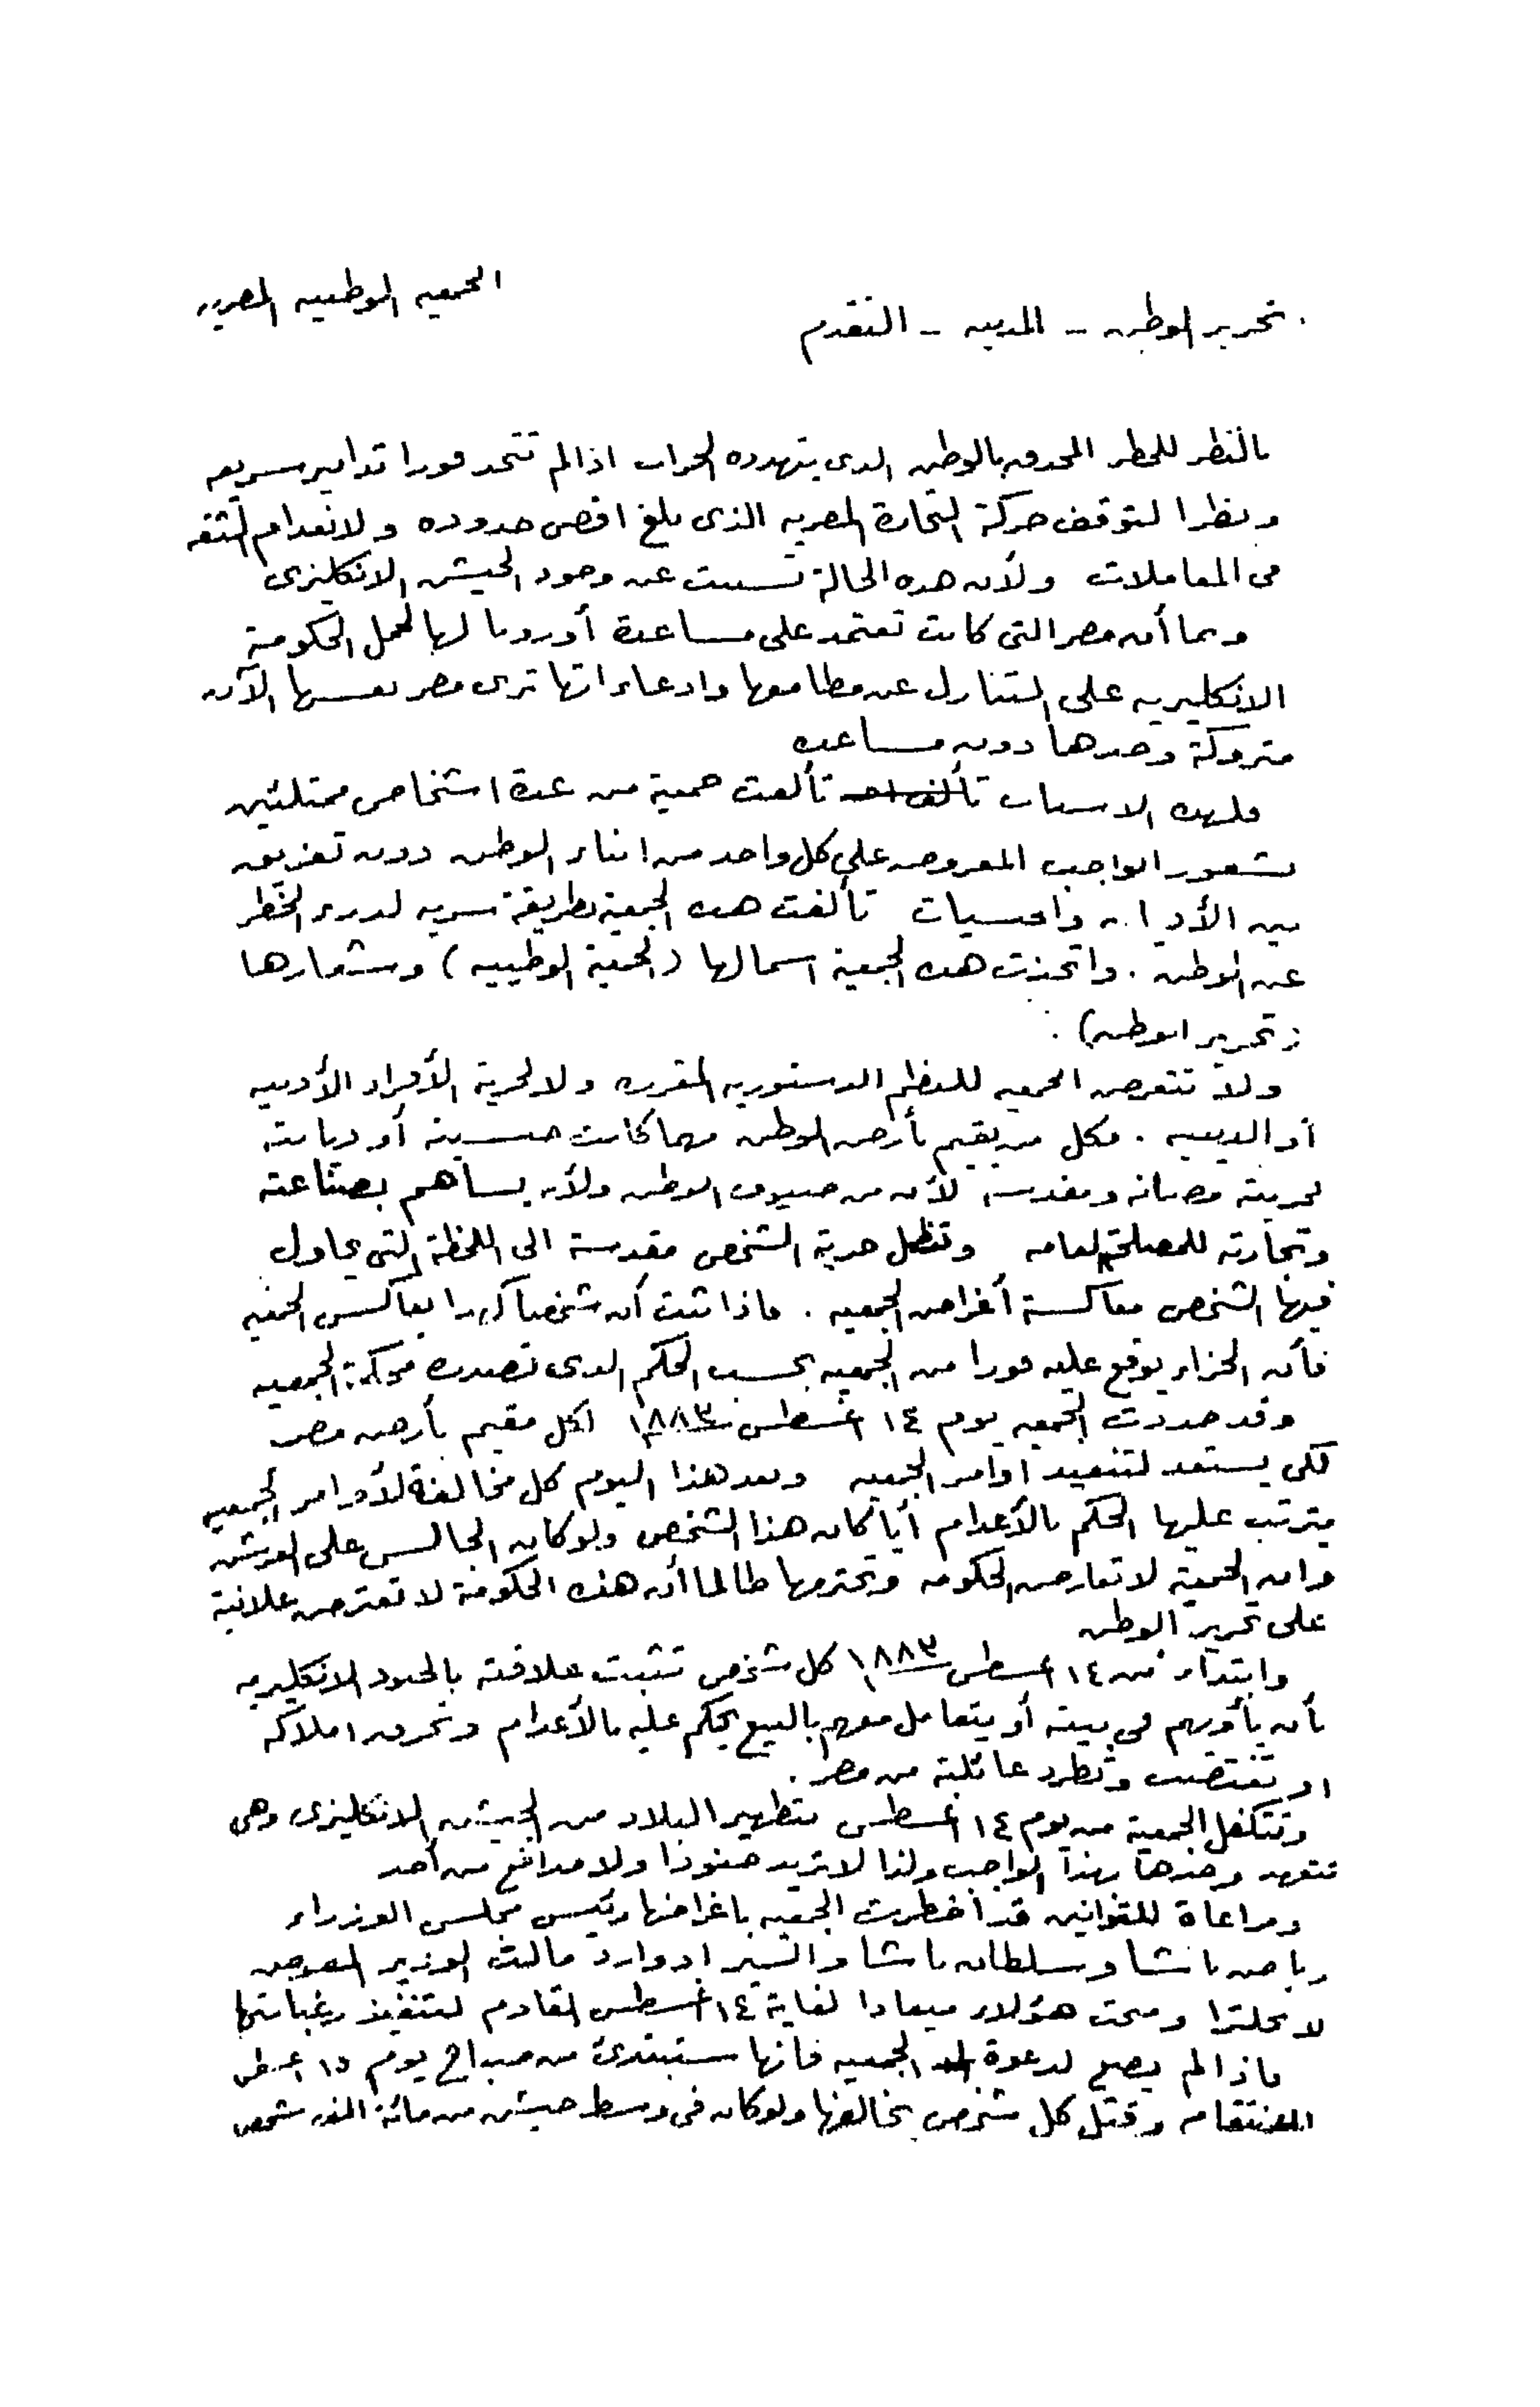 الجمعيه الوطنيه المصريه
تحرير الوطن - المدنيه - التقدم
بالنظر للخطر المحدق بالوطن الذى يتهدده الخراب اذا لم تتخذ فورا تدابير سريعه
ونظرا لتوقف حركة التجارة المصريه الذى بلغ اقصى حدوده ولانعدام الثقه
فى المعاملات ولأن هذه الحالة تسببت عن وجود الجيش الانكليزى
وبما أن مصر التى كانت تعتمد على مساعدة أوروبا لها لحمل الحكومة
الانكليزيه على التنازل عن مطامعها وادعاءاتها ترى مصر نفسها الآن
متروكة وحدها دون مساعده
فلهذه الاسباب تألفت جمعية من عدة اشخاص ممتلئين
بشعور الواجب المفروض على كل واحد من ابناء الوطن دون تفريق
بين الأديان والجنسيات تألفت هذه الجمعية بطريقة سريه لدرء الخطر
عن الوطن . واتخذت هذه الجمعية اسما لها (الجمعية الوطنيه) وشعارها
(تحرير الوطن) .
ولا تتعرض الجمعيه للنظم الدستوريه المقرره ولا لحرية الأفراد الأدبيه
أو الدينيه . فكل من يقيم بأرض الوطن مهما كانت جنسيته أو ديانته
فحريته مصانه ومقدسه لأنه من ضيوف الوطن ولأنه يساهم بصناعته
وتجارته للمصلحة العامه وتظل حرية الشخص مقدسة الى اللحظة التى يحاول
فيها الشخص معاكسة أغراض الجمعيه . فاذا ثبت أن شخصا يعاكس الجمعيه
فأن الجزاء يوقع عليه فورا من الجمعيه بحسب الحكم الذى تصدره محكمة الجمعيه
وقد حددت الجمعيه يوم ١٤ اغسطس ١٨٨٣ لكل مقيم بأرض مصر
لكى يستعد لتنفيذ اوامر الجمعيه وبعد هذا اليوم كل مخالفة لأوامر الجمعيه
يترتب عليها الحكم بالأعدام أيا كان هذا الشخص ولو كان الجالس على العرش
وان الجمعية لا تعارض الحكومه وتحترمها طالما أن هذه الحكومة لا تعترض علانية
على تحرير الوطن
وابتداء من ١٤ اغسطس ١٨٨٣ كل شخص تثبت علاقته بالجنود الانكليزيه
بأن يأويهم فى بيته أو يتعامل معهم بالبيع يحكم عليه بالأعدام وتحرق املاكه
او تغتصب وتطرد عائلته من مصر .
وتتكفل الجمعية من يوم ١٤ اغسطس بتطهير البلاد من الجيش الانكليزى وهى
تتعهد وحدها بهذا الواجب ولذا لا تريد جنودا ولا مدافع من أحد
ومراعاة للقوانين قد أخطرت الجمعيه باغراضها رئيس مجلس الوزراء
رياض باشا وسلطان باشا والسير ادوارد مالت الوزير المفوض
لانجلترا ومنحت هؤلاء ميعادا لغاية ١٤ اغسطس القادم لتنفيذ رغباتها
فاذا لم يصغ لدعوة الجمعيه فانها ستبتدئ من صباح يوم ١٥ اغسطس
الانتقام وقتل كل شخص يخالفها ولو كان فى وسط جيش من مائة الف شخص